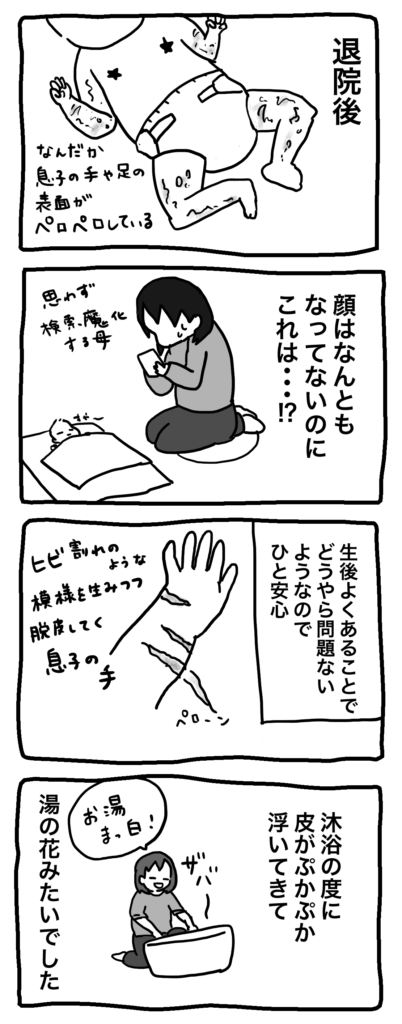 退院後
なんだか
息子の手や足の
表面が
ペロペロしている
顔はなんとも
なってないのに
これは・・・!?
思わず
検索魔化
する母
すやー
生後よくあることで
どうやら問題ない
ようなので
ひと安心
ヒビ割れの
ような
模様を生みつつ
脱皮してく
息子の手
ペローン
沐浴の度に
皮がぷかぷか
浮いてきて
ザバー
お湯
まっ白!
湯の花みたいでした